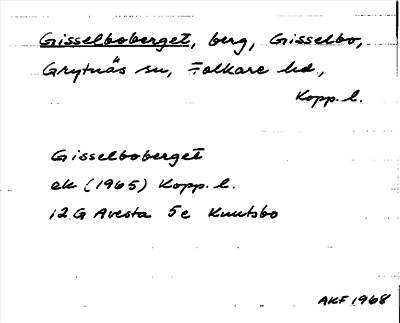 Gisselboberget, berg, Gisselbo,
Grytnäs sn, Folkare hd,
Kopp. l.
Gisselboberget
ek (1965) Kopp. l.
12 G Avesta 5e Knutsbo
AKF 1968